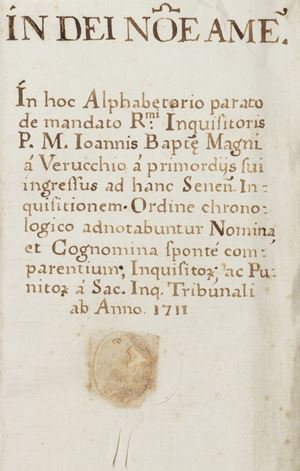 ÍN DEI NÕE AMẼ.
Ín hoc Alphabętorio parato
de mandato Rmi Inquisitoris
P. M. Ioannis Baptę Magni
á Verucchio á primordijs sui
ingressus ad hanc Senen. In-
quisitionem. Ordine chrono-
logico adnotabuntur Nomina
et Cognomina sponté com-
parentium, Inquisitoꝝ, ac Pu-
nitoꝝ á Sac. Inq. Tribunali
ab Anno. 1711